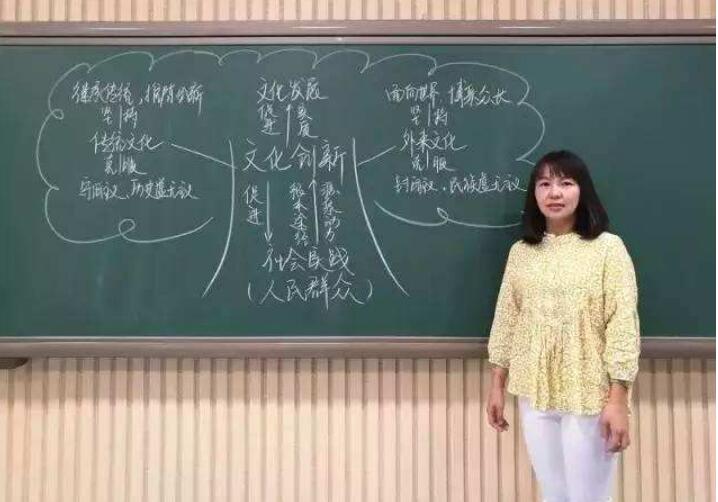 继承传统，推陈出新
坚持
传统文化
克服
守旧主义，历史虚无主义
文化发展
促进
实质
文化创新
促进
根本途径
源泉动力
社会实践
（人民群众）
面向世界，博采众长
坚持
外来文化
克服
封闭主义，民族虚无主义